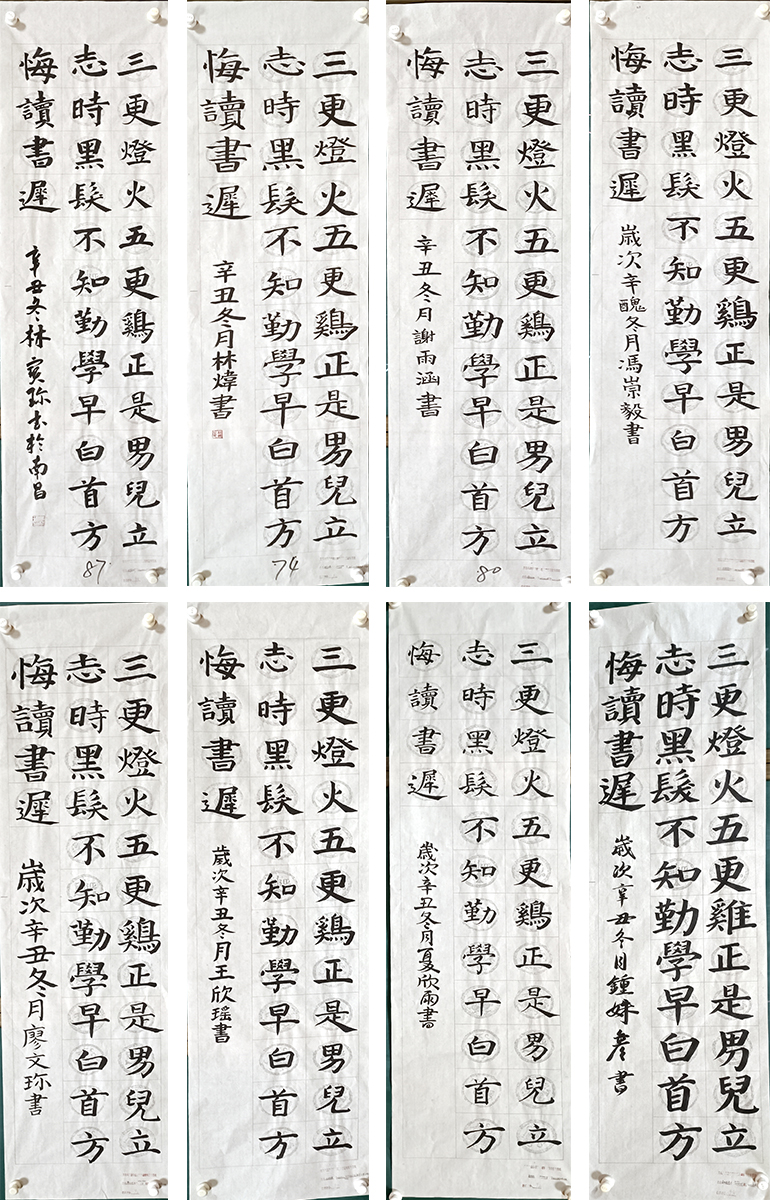 三更燈火五更鷄正是男兒立
志時黑髮不知勤學早白首方
悔讀書遲
辛丑冬林寅珎书於南昌
87
三更燈火五更鷄正是男兒立
志時黑髮不知勤學早白首方
悔讀書遲
辛丑冬月林煒書
74
三更燈火五更鷄正是男兒立
志時黑髮不知勤學早白首方
悔讀書遲
辛丑冬月謝雨涵書
80
三更燈火五更鷄正是男兒立
志時黑髮不知勤學早白首方
悔讀書遲
歲次辛醜冬月馮崇毅書
三更燈火五更鷄正是男兒立
志時黑髮不知勤學早白首方
悔讀書遲
歲次辛丑冬月廖文珎書
三更燈火五更鷄正是男兒立
志時黑髮不知勤學早白首方
悔讀書遲
歲次辛丑冬月王欣瑤書
三更燈火五更鷄正是男兒立
志時黑髮不知勤學早白首方
悔讀書遲
歲次辛丑冬月夏欣雨書
三更燈火五更雞正是男兒立
志時黑髮不知勤學早白首方
悔讀書遲
歲次辛丑冬月鍾姝彥書